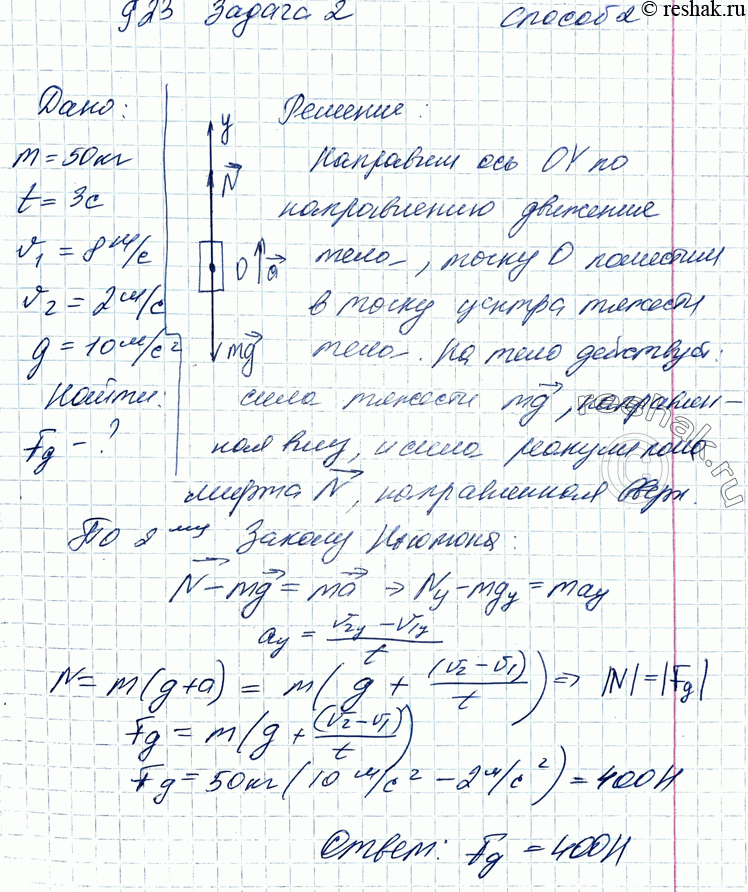 © reshak.ru
§23 Задача 2 Способ 2
Дано:
m = 50кг
t = 3с
v₁ = 8м/с
v₂ = 2м/с
g = 10м/с²
Найти:
Fg - ?
y
N
O a
mg
Решение:
Направим ось OY по
направлению движения
тела, точку O поместим
в точку центра тяжести
тела. На тело действуют:
сила тяжести mg, направлен-
ная вниз, и сила реакции пола
лифта N, направленная вверх.
По 2му Закону Ньютона:
N - mg = ma ⇒ Ny - mgy = may
ay = (v₂y - v₁y)/t
N = m(g+a) = m(g + (v₂ - v₁)/t) ⇒ |N| = |Fg|
Fg = m(g + (v₂ - v₁)/t)
Fg = 50кг(10м/с² - 2м/с²) = 400Н
Ответ: Fg = 400Н
reshak.ru
©